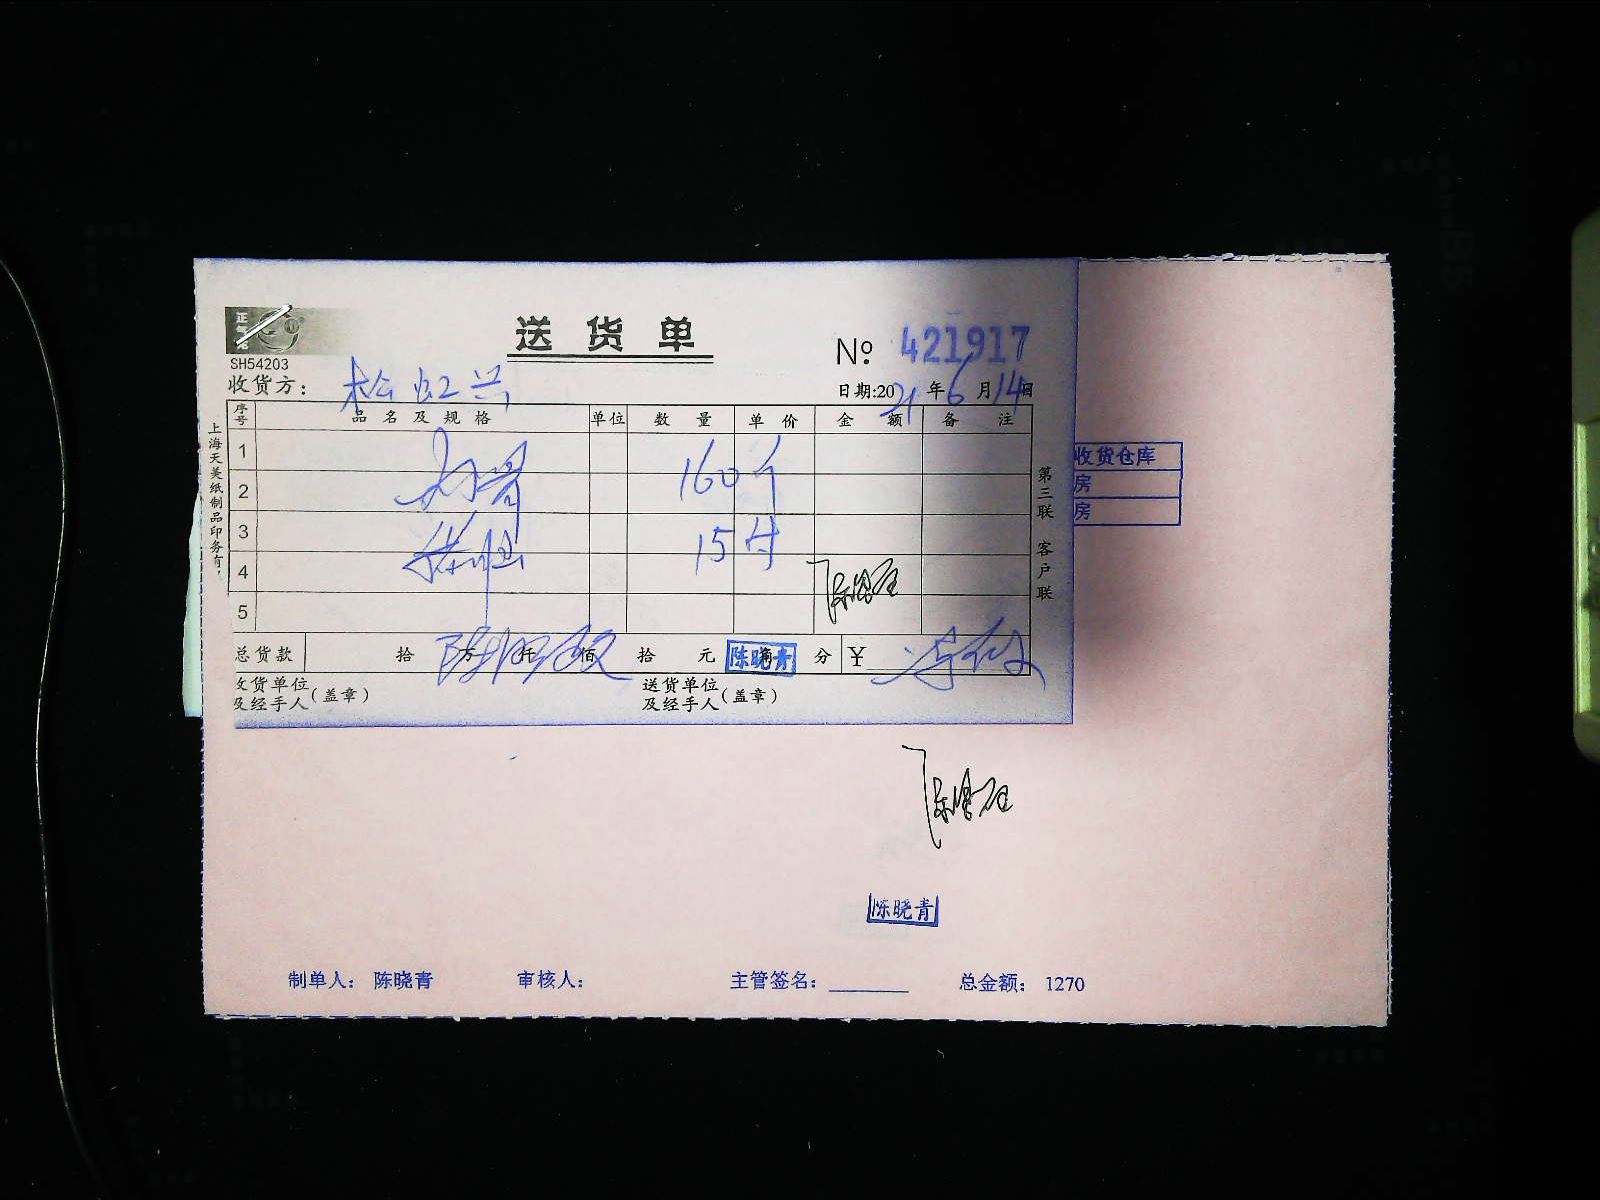 送货单
SH54203
№ 421917
收货方：松江
日期:2021年6月14日
序号 品名及规格 单位 数量 单价 金额 备注
1
160个
2
3
15付
4
5
总货款 拾 万 仟 佰 拾 元 角 分 ¥
陈晓青
收货单位及经手人(盖章)
送货单位及经手人(盖章)
上海天美纸制品印务有
第三联 客户联
收货仓库
房
房
陈晓青
制单人： 陈晓青 审核人： 主管签名： 总金额： 1270